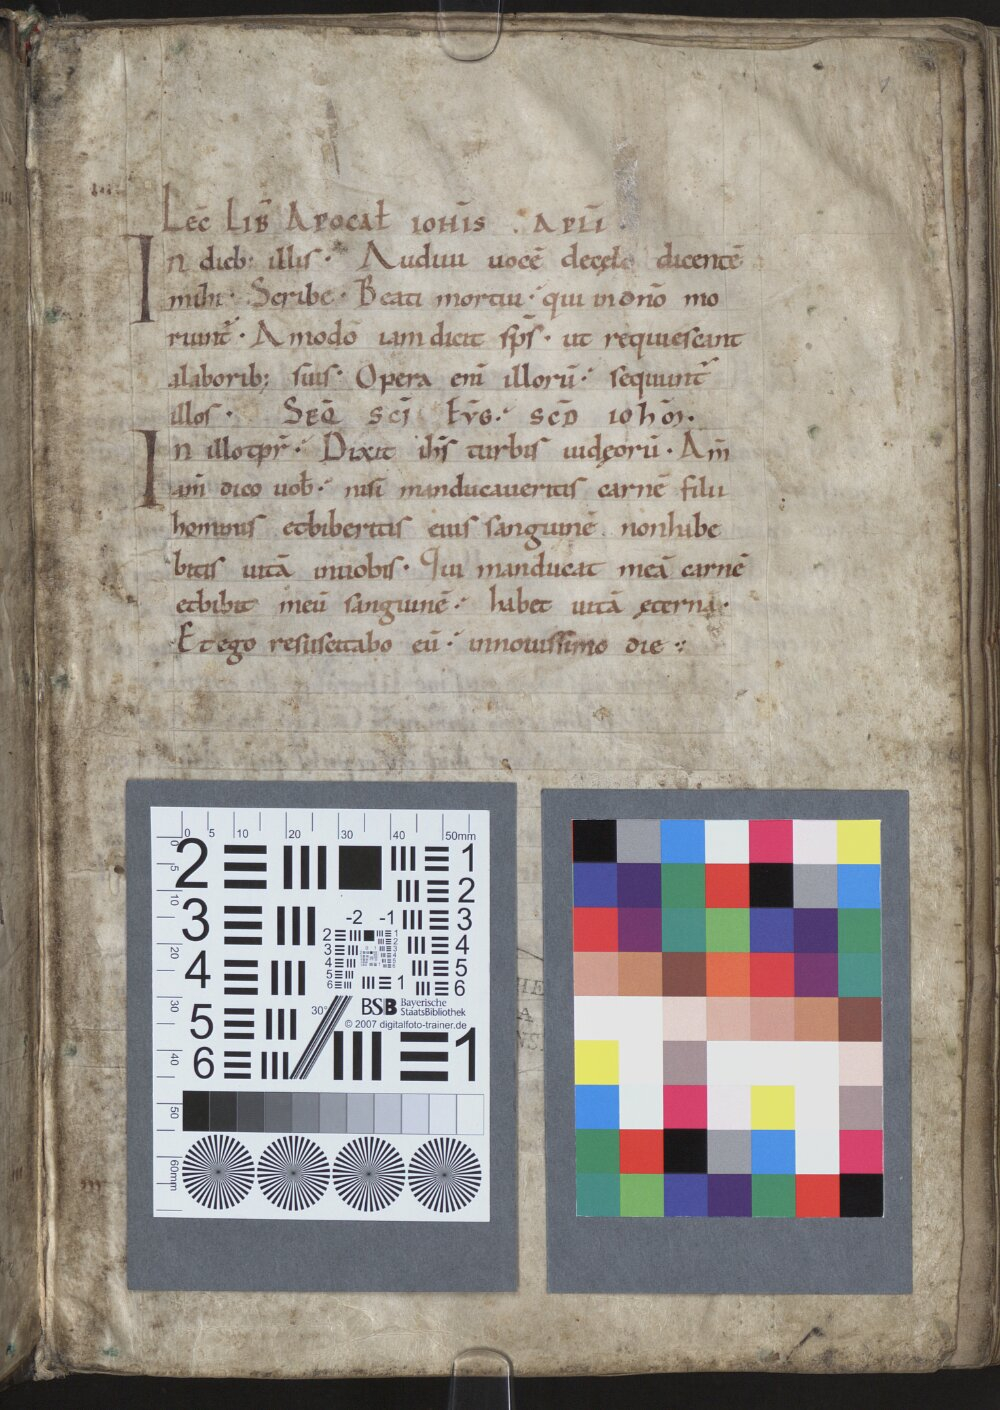 Lec̄ Lib̄ Apocal̄ iohīs . Apl̄i .
In dieb: illis · Audiui uocē decęlo dicentē
mihi · Scribe · Beati mortui · qui indnō mo
riunt̄ · Amodo iam dicit sp̄s · ut requiescant
alaborib; suis · Opera enī illorū · sequunt̄
illos · Seq̄ sc̄i Evḡ · scd̄ iohōn ·
In illotpr̄ · Dixit ih̄s turbis iudęorū · Am̄
am̄ dico uob̄ · nisi manducaueritis carnē filii
hominis etbiberitis eius sanguinē nonhabe
bitis uitā inuobis · Qui manducat meā carnē
etbibit meū sanguinē · habet uitā ęternā ·
Et ego resuscitabo eū · innouissimo die :
0 5 10 20 30 40 50mm
0 5 10 20 30 40 50 60mm
2 1
2
3 -2 -1 3
2 1
3 2
4 4
5 5
6 1 6
30°
BSB Bayerische
StaatsBibliothek
© 2007 digitalfoto-trainer.de
5
6 1